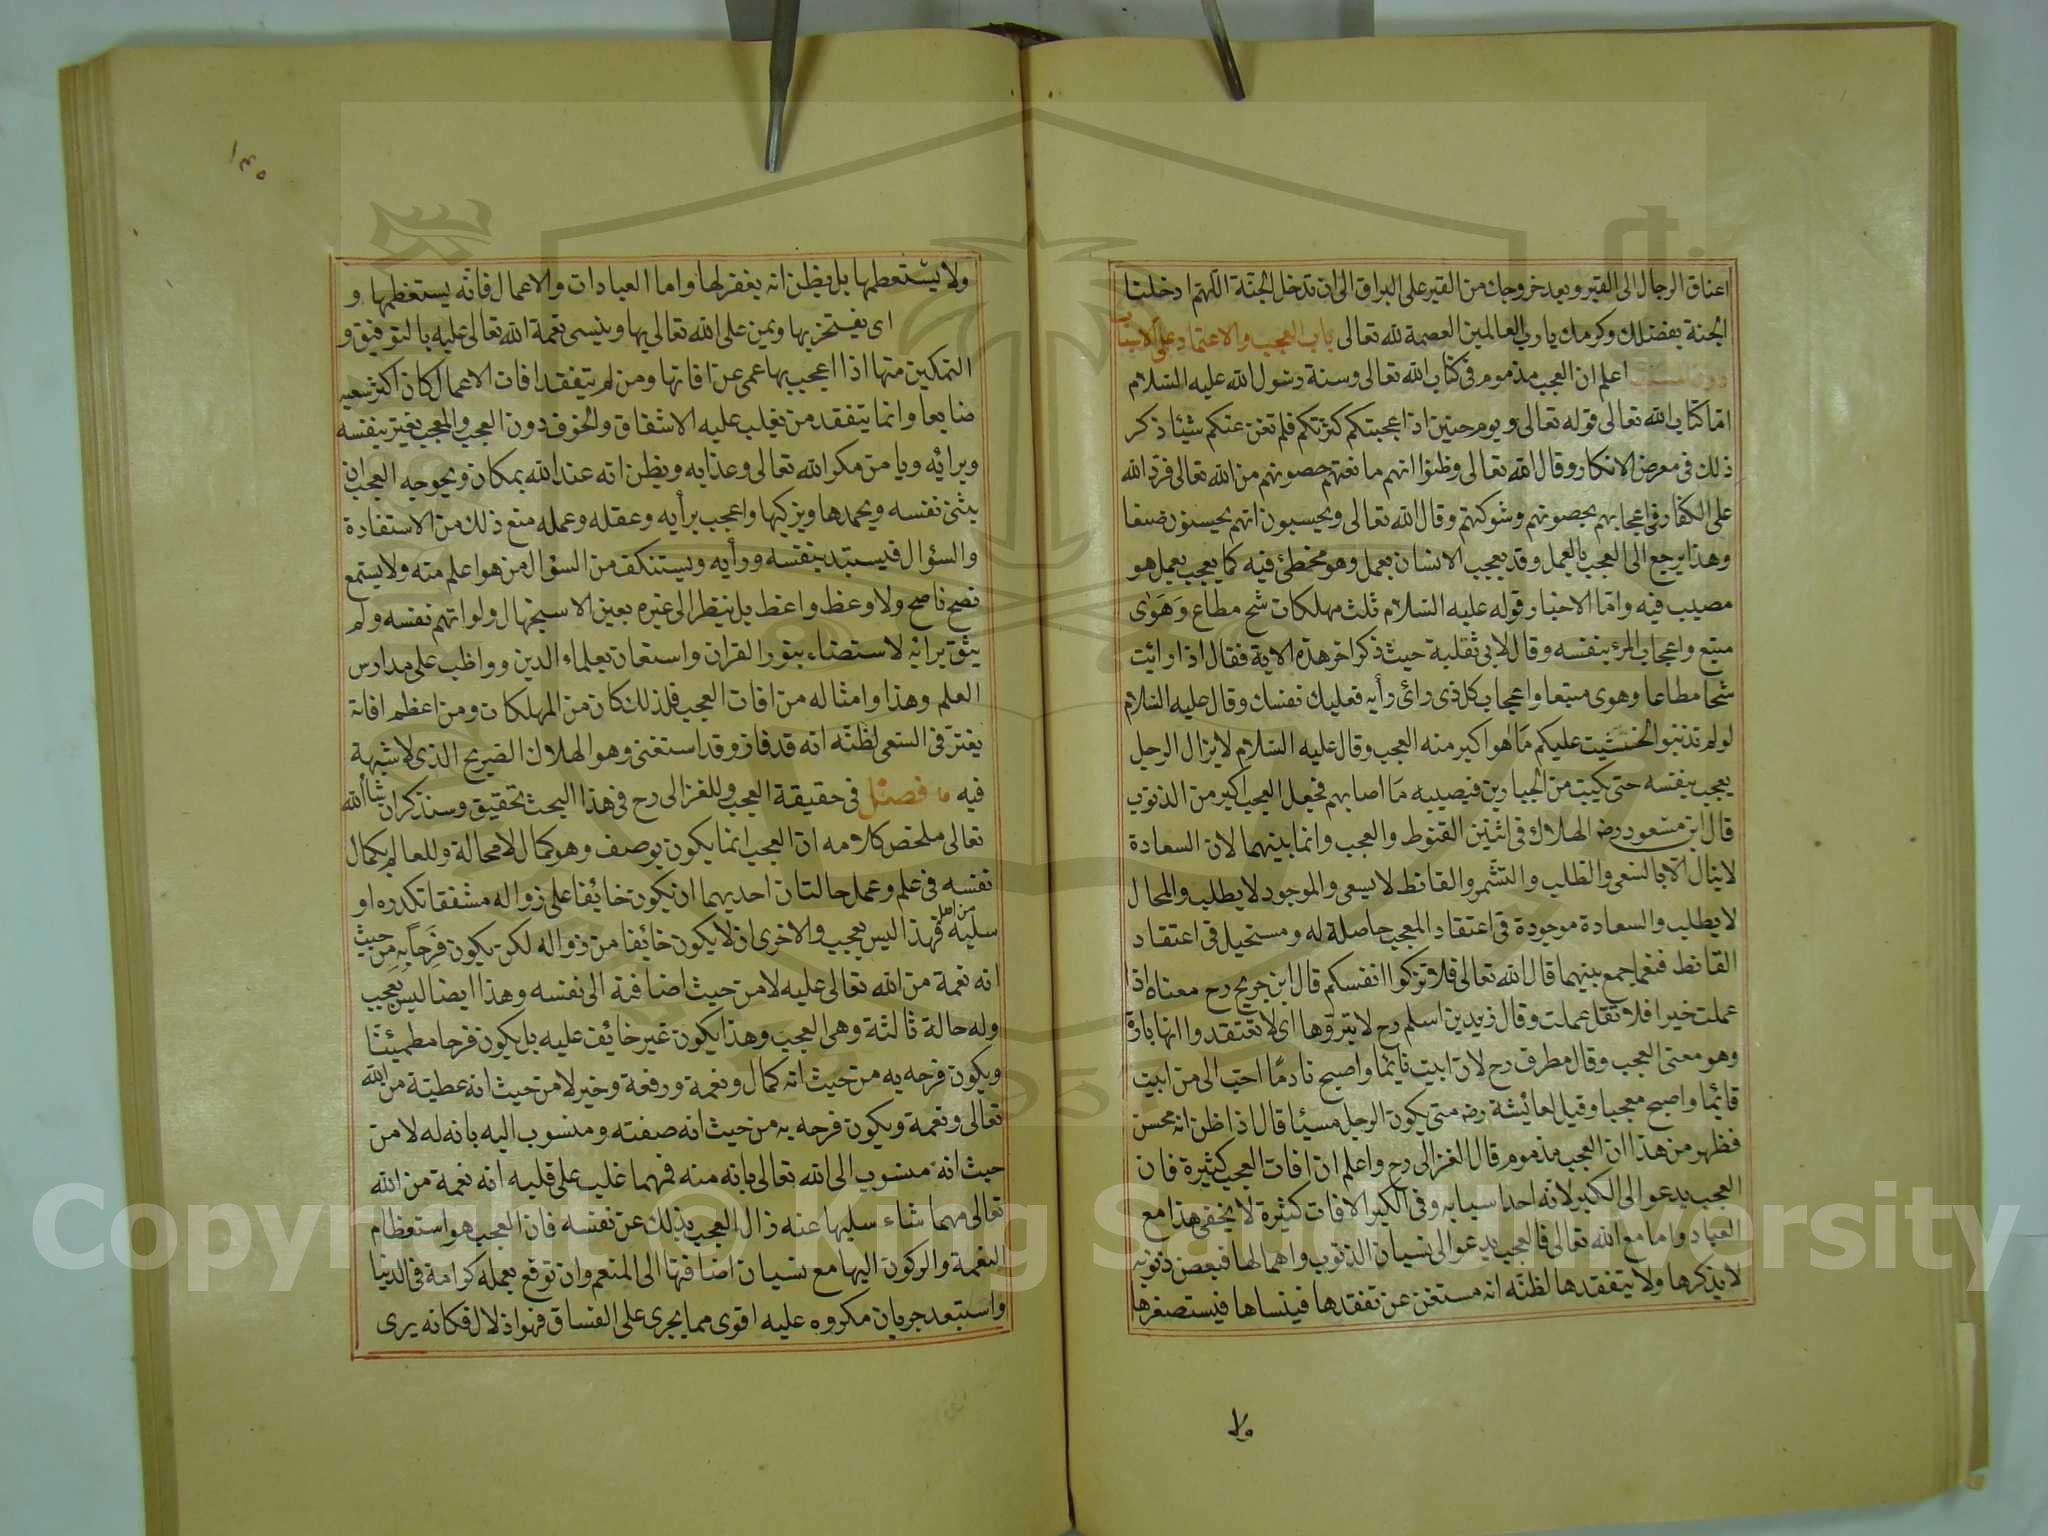 اعناق الرجال الى القبر وبعد خروجك من القبر على البراق الى ان تدخل الجنة اللهم ادخلنا
الجنة بفضلك وكرمك يا رب العالمين العصمة لله تعالى باب العجب والاعتماد على الاسباب
دون المسبب اعلم ان العجب مذموم فى كتاب الله تعالى وسنة رسول الله عليه السلام
امّا كتاب الله تعالى قوله تعالى ويوم حنين اذ اعجبتكم كثرتكم فلم تغن عنكم شيئا ذكر
ذلك فى معرض الانكار وقال الله تعالى وظنوا انهم مانعتهم حصونهم من الله تعالى فرد الله
على الكفار فى اعجابهم بحصونهم وشوكتهم وقال الله تعالى ويحسبون انهم يحسنون صنعا
وهذا يرجع الى العجب بالعمل وقد يعجب الانسان بعمل وهو مخطئ فيه كما يعجب بعمل هو
مصيب فيه وامّا الاخبار قوله عليه السلام ثلث مهلكات شح مطاع وَهَوًى
متبع واعجاب المرء بنفسه وقال لابى ثقلبة حيث ذكر اخر هذه الاية فقال اذا رايت
شحا مطاعا وهوى متبعا واعجاب كل ذى رائ رأيه فعليك نفسك وقال عليه السلام
لو لم تذنبوا لخشيت عليكم مَا هو اكبر منه العجب وقال عليه السلام لا يزال الرجل
يعجب بنفسه حتى يكتب من الجبارين فيصيبه مَا اصابهم فجعل العجب اكبر من الذنوب
قال ابن مسعود رضه الهلاك فى اثنين القنوط والعجب وانما بينهما لان السعادة
لا ينال الا بالسعى والطلب والتشمر والقانط لا يسعى والموجود لا يطلب والمحال
لا يطلب والسعادة موجودة فى اعتقاد المعجب حاصلة له ومستحيل فى اعتقاد
القانط فنعما جمع بينهما قال الله تعالى فلا تزكوا انفسكم قال ابن جريج رح معناه اذا
عملت خيرا فلا تقل عملت وقال زيد بن اسلم رح لا يتروها اى لا تعتقدوا انها بارة
وهو معنى العجب وقال مطرف رح لان ابيت نايما واصبح نادمًا احب الى من ابيت
قائما واصبح معجبا وقيل لعائيشة رضه متى يكون الرجل مسيئا قال اذا ظن انه محسن
فظهر من هذا ان العجب مذموم قال الغزالى رح واعلم ان افات العجب كثيرة فان
العجب يدعو الى الكبر لانه احد اسبابه وفى الكبر الافات كثيرة لا يخفى هذا مع
العباد واما مع الله تعالى فالعجب يدعو الى نسيان الذنوب واهمالها فبعض ذنوبه
لا يذكرها ولا يتفقدها لظنه انه مستغن عن تفقدها فينساها فيستصغرها
ولا
١٤٥
ولا يستعظمها بل يظن انه يغفر لها واما العبادات والاعمال فانه يستعظمها و
اى يفتخر بها ويمن على الله تعالى بها وينسى نعمة الله تعالى عليه بالتوفيق و
التمكين منها اذا اعجب بها عمى عن افاتها ومن لم يتفقد افات الاعمال كان اكثر سعيه
ضايعا وانما يتفقد من يغلب عليه الاشفاق والخوف دون العجب والمعجب يغتر بنفسه
وبرائه ويامن مكر الله تعالى وعذابه ويظن انه عند الله بمكان ويحوجه العجب ان
يثنى نفسه ويحمدها ويزكيها واعجب برأيه وعقله وعمله منع ذلك من الاستفادة
والسؤال فيستبد بنفسه ورأيه ويستنكف من السؤال من هو اعلم منه ولا يستمع
نصح ناصح ولا وعظ واعظ بل ينظر الى غيره بعين الاستجهال ولو اتهم نفسه ولم
يثق برائه لاستضاء بنور القران واستعان بعلماء الدين وواظب على مدارس
العلم وهذا وامثاله من افات العجب فلذلك كان من المهلكات ومن اعظم افاته
يغتر فى السعى لظنه انه قد فاز وقد استغنى وهو الهلاك الصريح الذى لا شبهة
فيه فصل فى حقيقة العجب وللغزالى رح فى هذا البحث تحقيق وسنذكر ان شاء الله
تعالى ملخص كلامه ان العجب انما يكون بوصف وهو كمال لا محالة وللعالم بكمال
نفسه فى علم وعمل حالتان احديهما ان يكون خايفا على زواله مشفقا تكدره او
سلبه من اهله فهذا ليس بعجب والاخرى ان لا يكون خائفا من زواله لكن يكون فَرِحًا به من حيث
انه نعمة من الله تعالى عليه لا من حيث اضافته الى نفسه وهذا ايضا ليس بعجب
وله حالة ثالثة وهى العجب وهذا يكون غير خايف عليه بل يكون فرحا مطمئنا
ويكون فرحه به من حيث انه كمال ونعمة ورفعة وخير لا من حيث انه عطية من الله
تعالى ونعمة ويكون فرحه به من حيث انه صفته ومنسوب اليه بانه له لا من
حيث انه منسوب الى الله تعالى بانه منه فمهما غلب على قلبه انه نعمة من الله
تعالى مهما شاء سلبها عنه زال العجب بذلك عن نفسه فان العجب هو استعظام
النعمة والركون اليها مع نسيان اضافتها الى المنعم وان توقع بعمله كرامة فى الدنيا
واستبعد جريان مكروه عليه اقوى مما يجرى على الفساق فهو اذلال فكانه يرى
Copyright © King Saud University